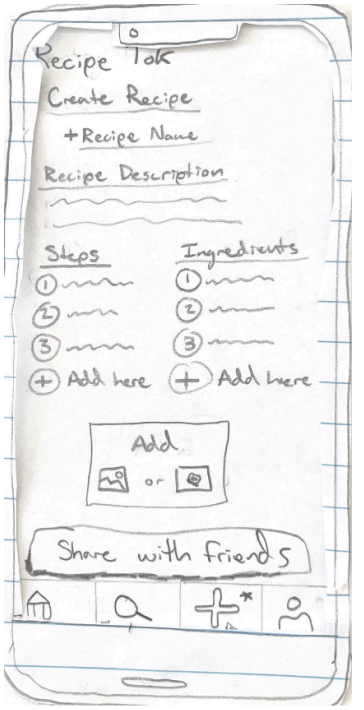 Recipe Tok
Create Recipe
+ Recipe Name
Recipe Description
Steps Ingredients
1 1
2 2
3 3
+ Add here + Add here
Add
or
Share with friends